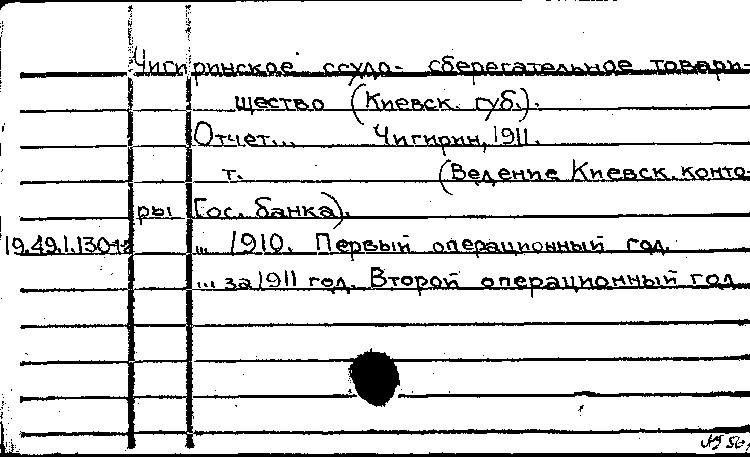 Чигиринское ссудо-сберегательное товари-
щество (Киевск. губ.).
Отчет... Чигирин, 1911.
т. (Ведение Киевск. конто-
ры Гос. банка).
19.49.1.130 1-2 ... 1910. Первый операционный год.
... за 1911 год. Второй операционный год